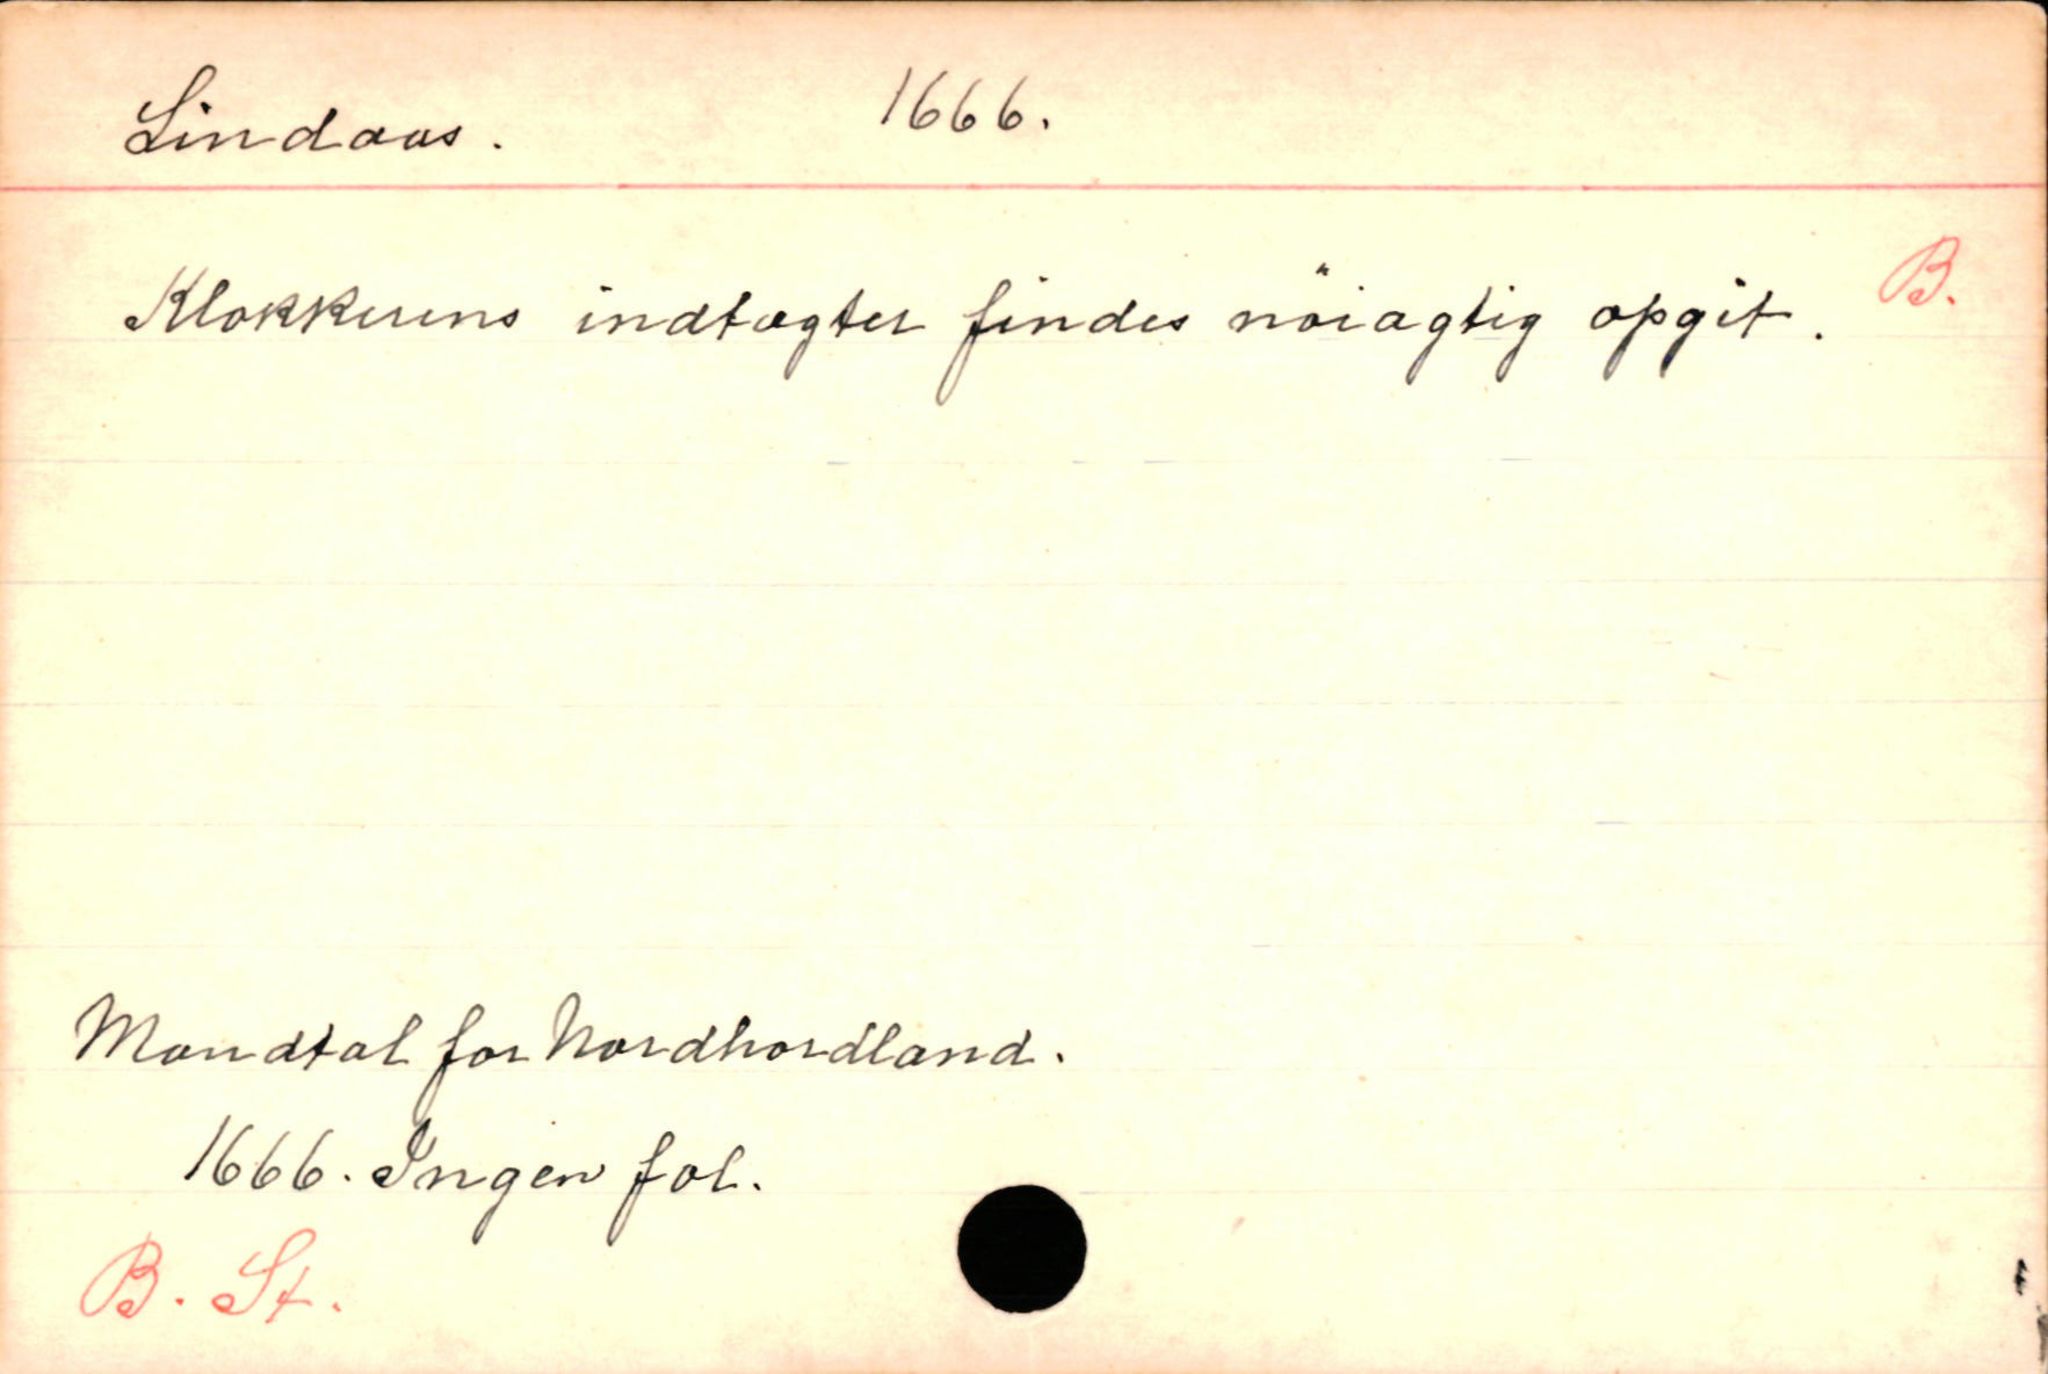 Lindaas. 1666.
Klokkerens indtægter findes nöiagtig opgit. B.
Mandtal for Nordhordland.
1666. Ingen fol.
B. St.